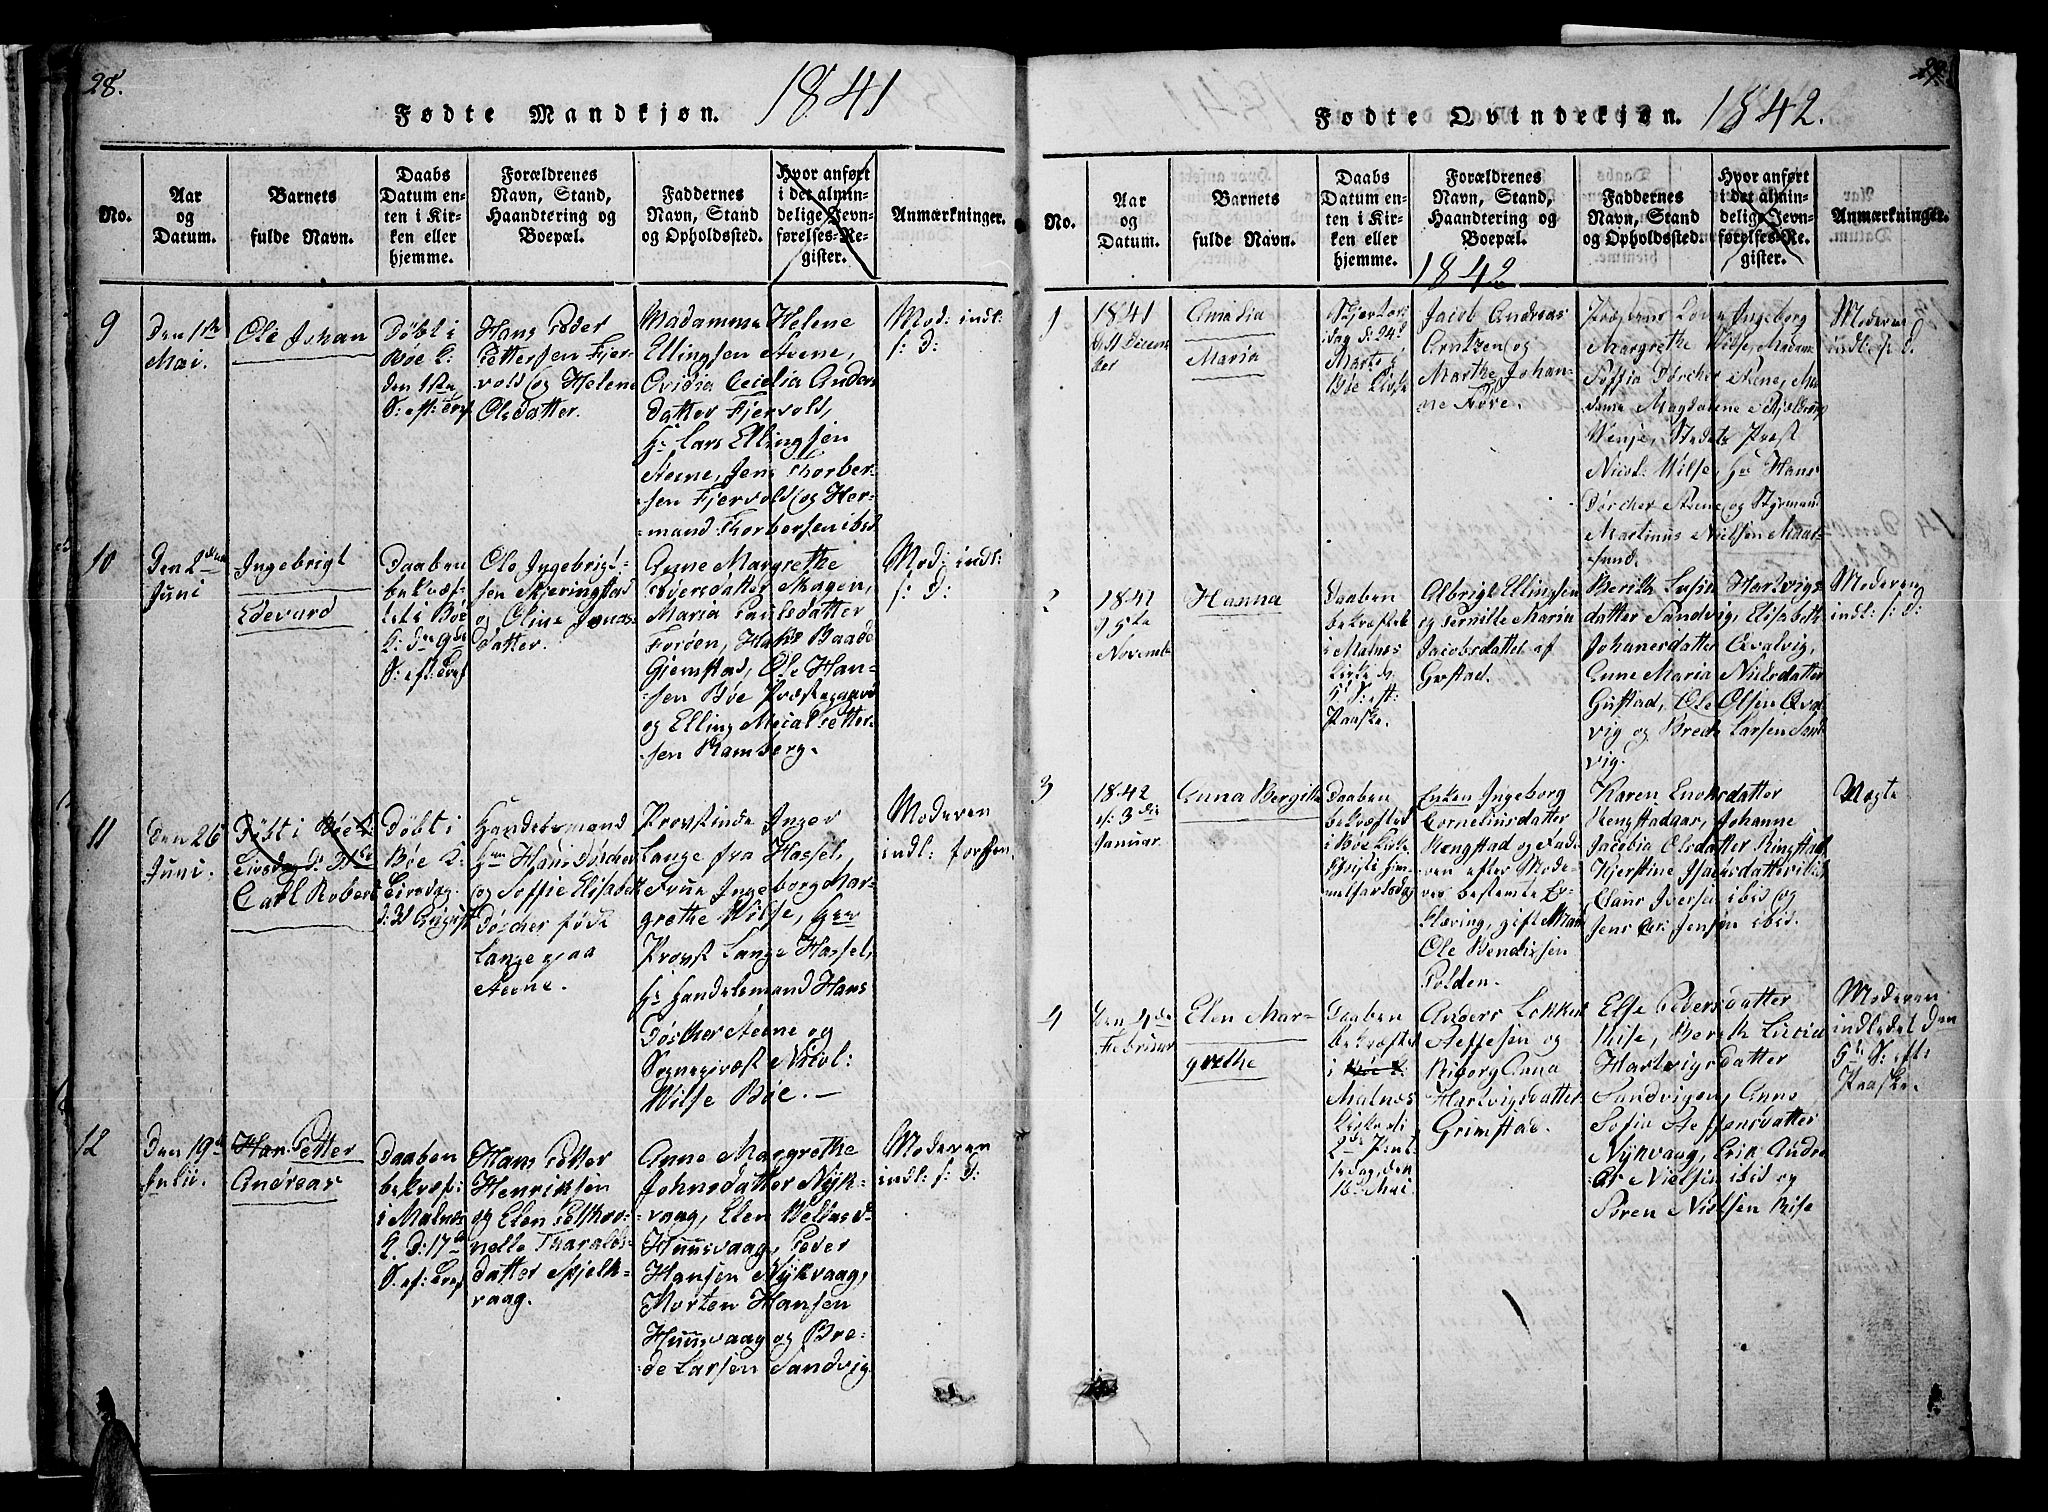 28.
Fødte Mandkjøn. 1841
No.
Aar
og
Datum.
Barnets
fulde Navn.
Daabs
Datum en-
ten i Kir-
ken eller
hjemme.
Forældrenes
Navn, Stand,
Haandtering og
Boepæl.
Faddernes
Navn, Stand
og Opholdssted.
Hvor anført
i det almin-
delige Jevn-
førelses-Re-
gister.
Anmærkninger.
9
Den 1ste
Mai.
Ole Johan
Døbt i
Bøe K:
den 1ste
S: eft: Tref
Hans Peder
Pettersen Fjer-
vold og Helene
Olsdatter.
Madamme Helene
Ellingsen Steene,
Ovidia Cecilia Anders
datter Fjervold,
Hr Lars Ellingsen
Steene, Jens Thorber-
sen Fjervold og Her-
mand Thorbersen ibid
Mod: indl:
s: D:
10
Den 2den
Juni
Ingebrigt
Edevard
Daaben
bekræf-
tet i Bøe
K: den 9de
S: eft: Tref
Ole Ingebrigt-
sen Skjeringstad
og Oline Jonas-
datter.
Anne Margrethe
Peersdatter Skagen,
Maria Paulsdatter
Forøen, Haks Baade
Gimstad, Ole Han-
sen Bøe Præstegaard
og Elling Micial Petter-
sen Ramberg.
Mod: indl:
s: D:
11
Den 26
Juni.
Døbt i Bøe K:
Tirsdag d: 31de
Carl Robert
Døbt i
Bøe K:
Tirsdag
d: 31 August
Handelsmand
Hrr Hans Dørcher
og Soffie Elisabeth
Dørcher født
Lange paa
Steene.
Provstinde Inger
Lange fra Hassel,
Frue Ingeborg Mar-
grethe Wilse, Herr
Provst Lange Hassel,
Hr Handelsmand Hans
Dørcher Steene og
Sognepræst Nicol:
Wilse Bøe. —
Moderen
indl: forhen.
12
Den 19de
Julii.
Han Petter
Andreas
Daaben
bekræf:
i Malnes
K. D: 17de
S. ef: Tref
Hans Petter
Henriksen
og Elen Petthro-
nelle Tharalds-
datter Spjelk-
vaag.
Anne Margrethe
Johnsdatter Nyk-
vaag, Elen
Huusvaag, Peder
Hansen Nykvaag,
Morten Hansen
Huusvaag og Bre-
de Larsen Sandvig.
Moderen
indl: s: D:
29.
Fødte Qvindekjøn. 1842.
No.
Aar
og
Datum.
Barnets
fulde Navn.
Daabs
Datum en-
ten i Kir-
ken eller
hjemme.
Forældrenes
Navn, Stand,
Haandtering og
Boepæl.
1842
Faddernes
Navn, Stand
og Opholdssted.
Hvor anført
i det almin-
delige Jevn-
førelses-Re-
gister.
Anmærkninger.
1
1841
Decem-
ber
Amalia
Maria
dag d: 24de
Marts i
Bøe Kirke
Jacob Andreas
Arntzen og
Marthe Johan-
ne Føre.
Ingeborg
Margrethe Wilse, Madam
Soffia Dørcher Steene, Ma-
damme Magdalene
Stedets Præst
Nicol: Wilse, Hr Hans
Dørcher Steene og Styrmand
Martinus Nielsen Maar-
sund.
Moderen
indl: s: d.
2
1841
Novemb
Hanna
Daaben
bekræftet
i Malnes
Kirke d.
5te S: eft:
Paaske.
Albrigt Ellingsen
og Pernille Marie
Jacobsdatter af
Gustad.
Berith Lusia Hartvigs-
datter Sandvig, Elisabeth
Johanesdatter Qvalvig,
Anne Maria Nielsdatter
Gustad, Ole Olsen Qval-
vig og Brede Larsen Sand-
vig.
Moderen
indl: s: d:
3
1842
d: 3die
Januar.
Anna Bergitte
Daaben
bekræftet
i Bøe Kirke
Christi Him-
melfartsdag
Enken Ingeborg
Corneliusdatter
Rengstad og Fade-
ren efter Mode-
rens bestemte Er-
klæring, gift Mand
Ole Bendixsen
Polden.
Karen Enoksdatter
Johanne
Jacobia Olsdatter Ringstad,
Kjerstine Isaksdatter ibid
Claus Iversen ibid og
Jens Jensen ibid.
Vægte
4
Den 4de
Februar
Elen Mar-
grethe
Daaben
bekræftet
i Bøe K:
Malnes
Kirke d:
2den Pint-
sedag den
16de Mai.
Anders Lokkert
Steffesen og
Riborg Anna
Hartvigsdatter
Grimstad.
Else Pedersdatter
Rise, Bereth Lucia
Hartvigsdatter
Sandvigen, Anne
Sofia Steffensdatter
Nykvaag, Erik Andre-
as Nielsen ibid og
Søren Nielsen Rise
Moderen
indledet den
5te S: eft:
Paaske.